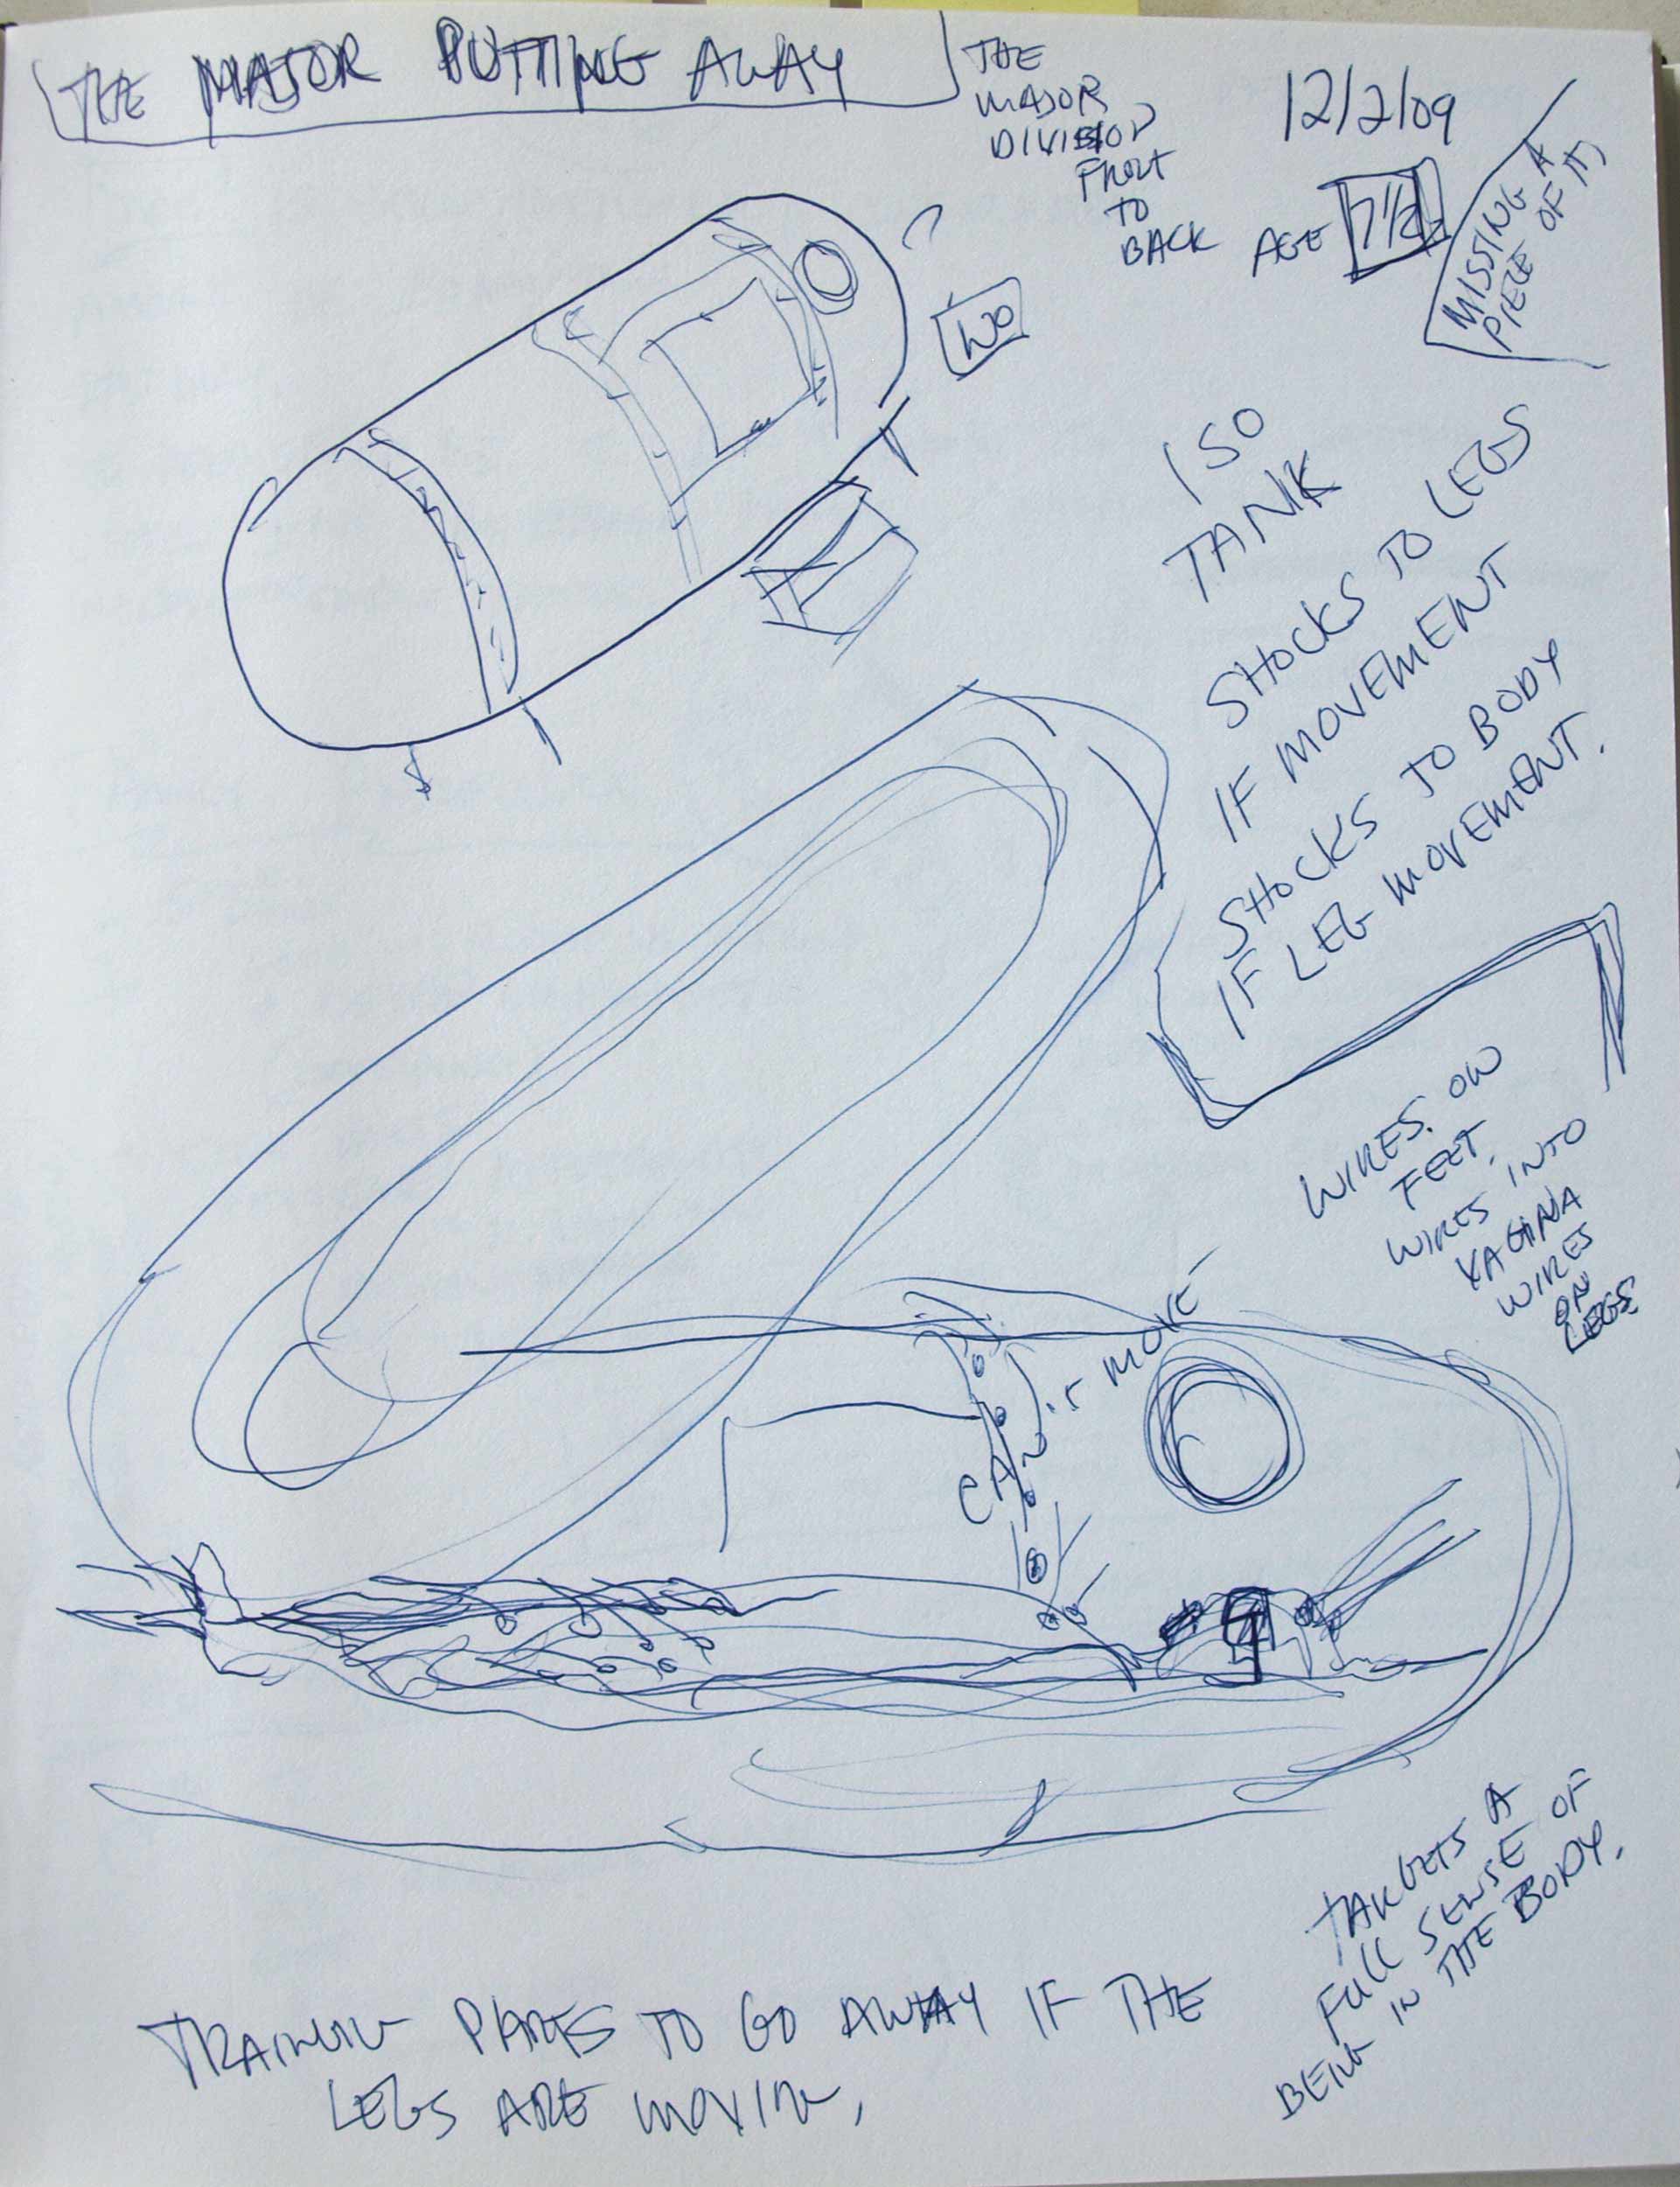 THE MAJOR PUTTING AWAY
THE
MAJOR
DIVISION
FRONT
TO
BACK
12/2/09
AGE 7 1/2
MISSING A
PIECE OF IT
NO
ISO
TANK
SHOCKS TO LEGS
IF MOVEMENT
SHOCKS TO BODY
IF LEG MOVEMENT.
WIRES ON
FEET.
WIRES INTO
VAGINA
WIRES
ON
LEGS
CAN'T MOVE
TARGETS A
FULL SENSE OF
BEING IN THE BODY.
TRAINING PARTS TO GO AWAY IF THE
LEGS ARE MOVING,